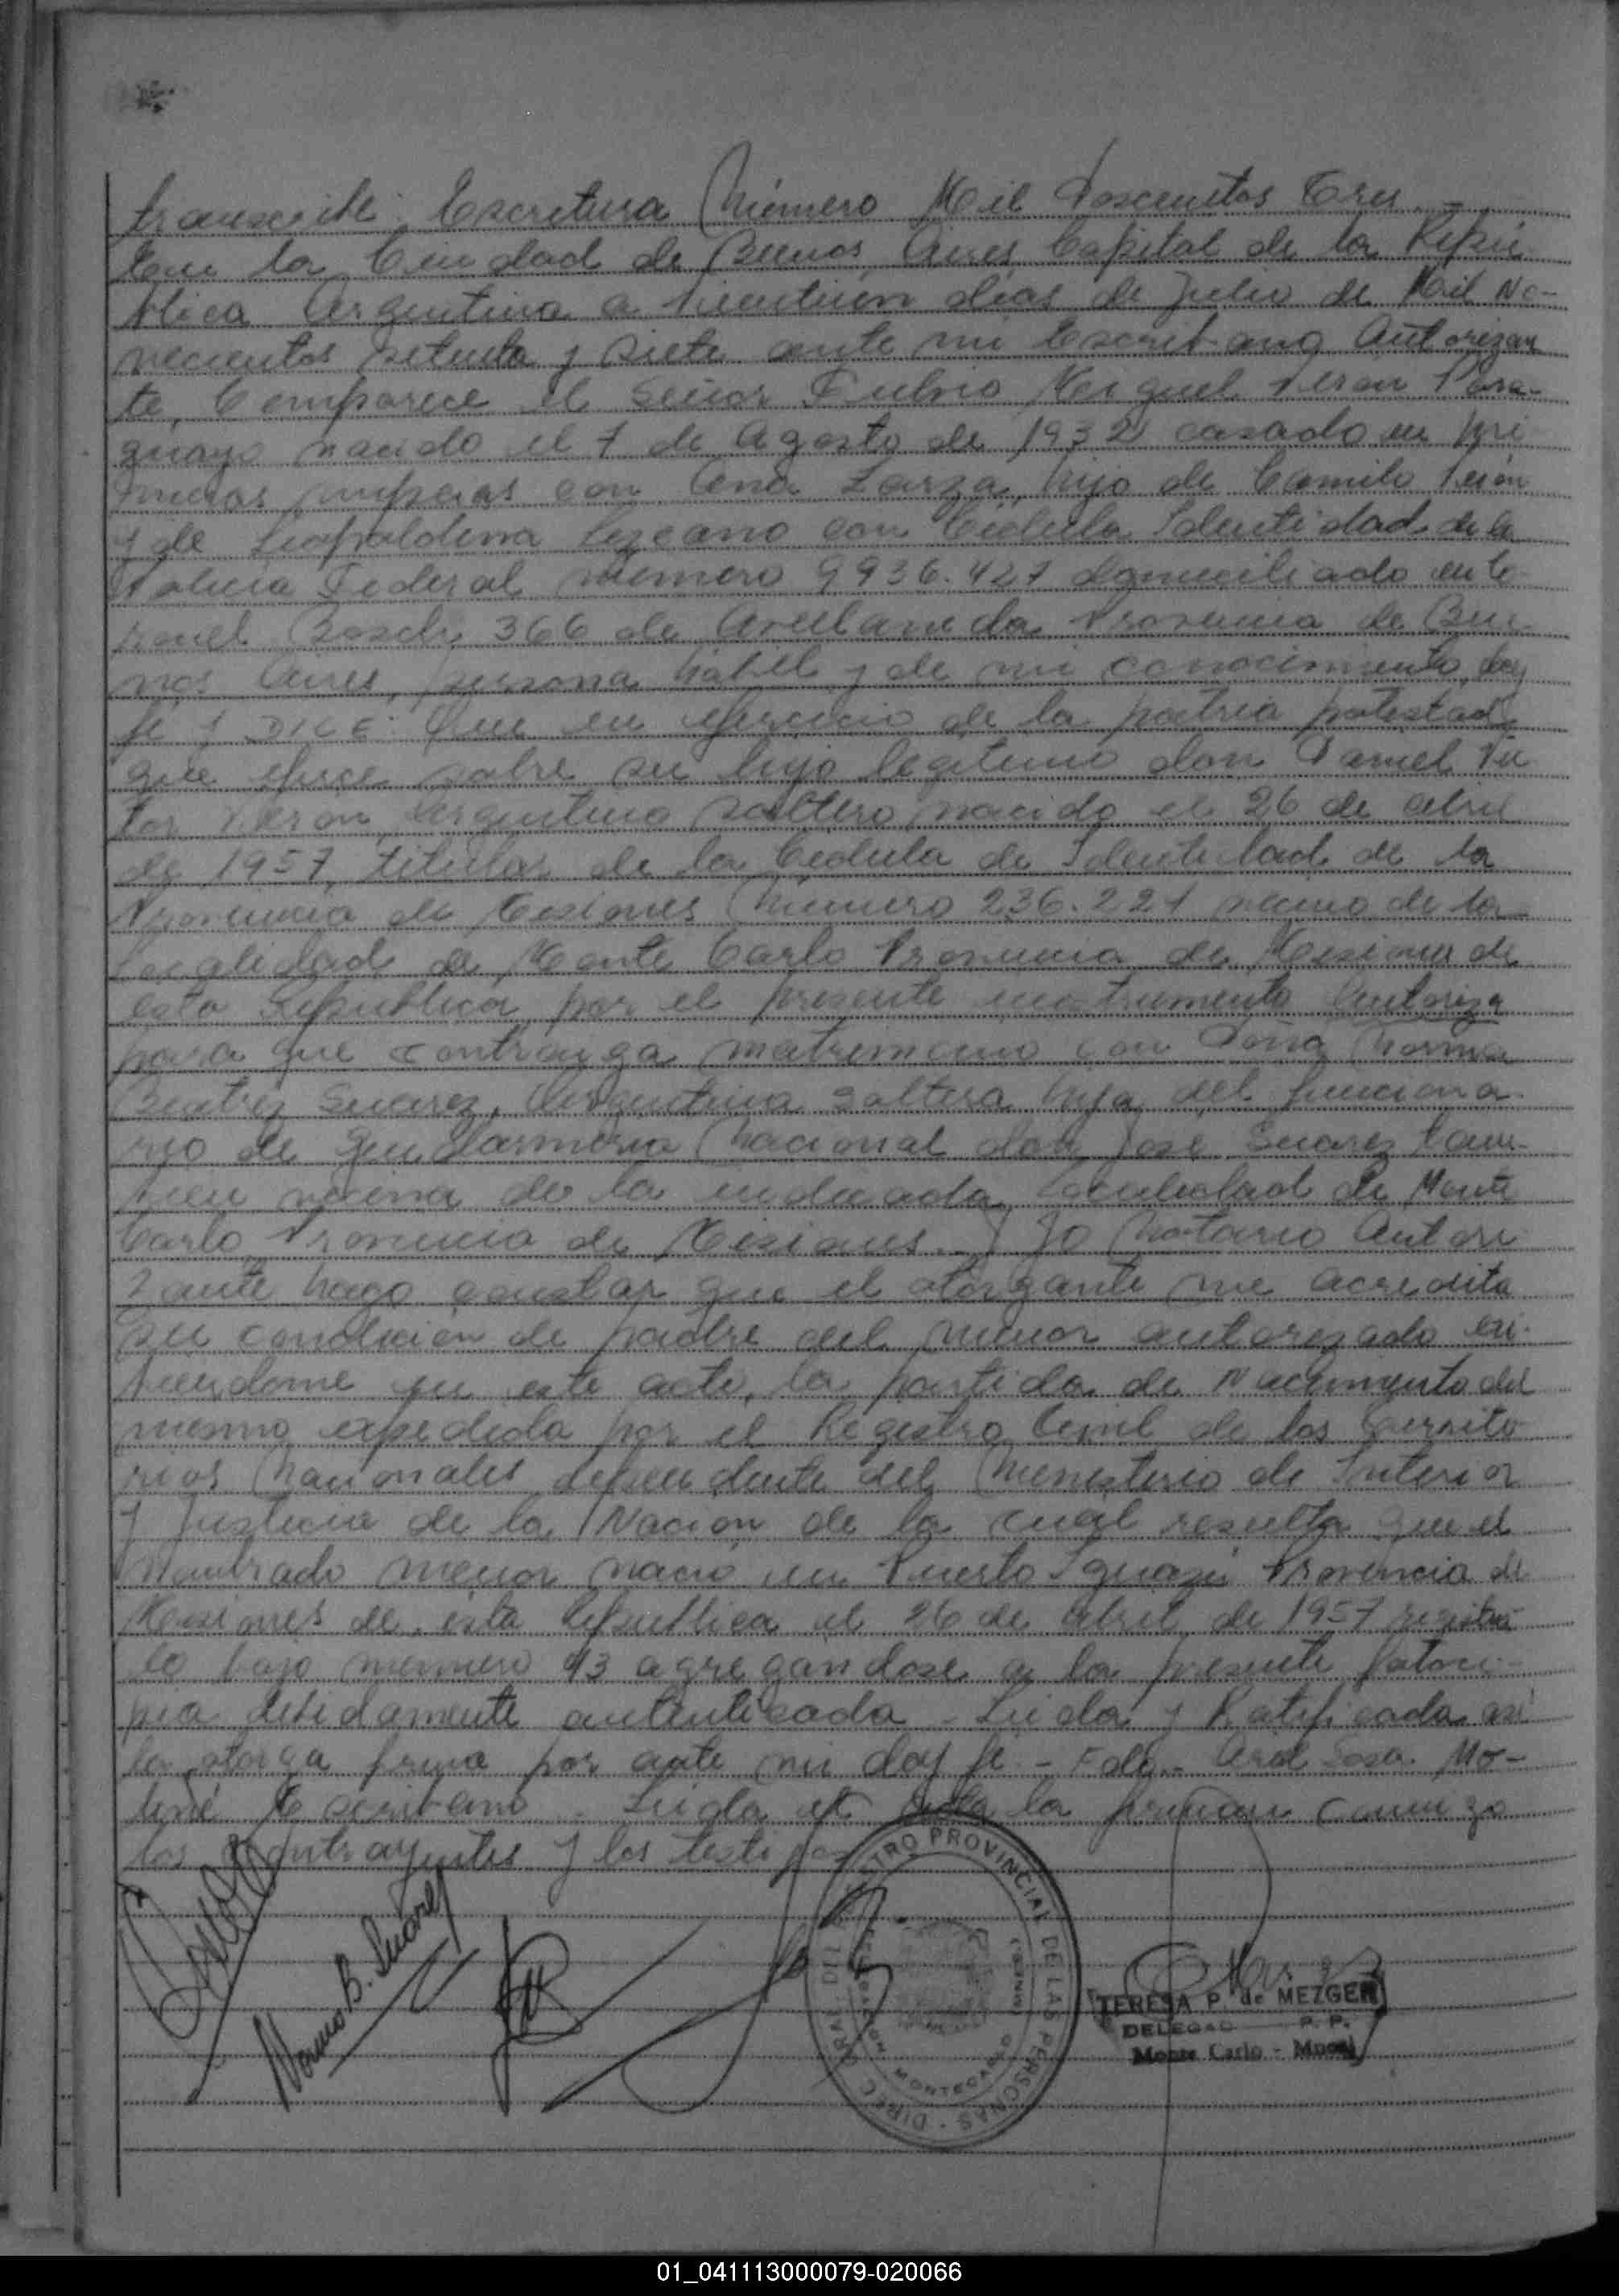 transcribe: Escritura Número Mil Doscientos Tres.-
En la Ciudad de Buenos Aires Capital de la Repú
blica Argentina a Veintiún días de Julio de Mil No-
vecientos setenta y siete ante mi Escribano Autorizan
te, Comparece el Señor Fulvio Miguel Veron Para-
guayo nacido el 7 de Agosto de 1932 casado en pri
meras nupcias con Ana Zarza, hijo de Camilo Verón
y de Leopoldina Lezcano con Cédula Identidad de la
Policia Federal número 9936.427 domiciliado en Co
ronel Bosch 366 de Avellaneda Provincia de Bue
nos Aires, persona hábil y de mi conocimiento, doy
fe y DICE: Que en ejercicio de la patria potestad
que ejerce sobre su hijo legítimo don Daniel Vic
tor Verón, Argentino soltero, nacido el 26 de abril
de 1957, titular de la Cedula de Identidad de la
Provincia de Misiones Número 236.221 vecino de la
localidad de Monte Carlo Provincia de Misiones de
esta República, por el presente instrumento Autoriza
para que contraiga matrimonio con Doña Norma
Beatriz Suarez, Argentina soltera hija del funciona
rio de Gendarmeria Nacional don José Suarez tam-
bien vecina de la indicada localidad de Monte
Carlo, Provincia de Misiones. Y Yo Notario Autori
zante hago constar que el otorgante me acredita
su condición de padre del menor autorizado exi
biendome en este acto, la partida de Nacimiento del
mismo expedida por el Registro Civil de los Territo
rios Nacionales dependiente del Ministerio de Interior
y Justicia de la Nación de la cual resulta que el
Nombrado menor nació en Puerto Iguazú Provincia de
Misiones de esta República el 26 de abril de 1957 registra
do bajo número 43 agregandose a la presente fotoco-
pia debidamente autenticada - Leida y Ratificada asi
la otorga firma por ante mi doy fe - Fdo.- Sosa Mo-
Escribano. Leida el acta la firman conmigo
los contrayentes y los testigos
Norma B. Suárez
REGISTRO PROVINCIAL DE LAS PERSONAS - DIREC GRAL
MONTECARLO
TERESA P. de MEZGER
DELEGAD R. P.
Monte Carlo - Mnes
01_041113000079-020066